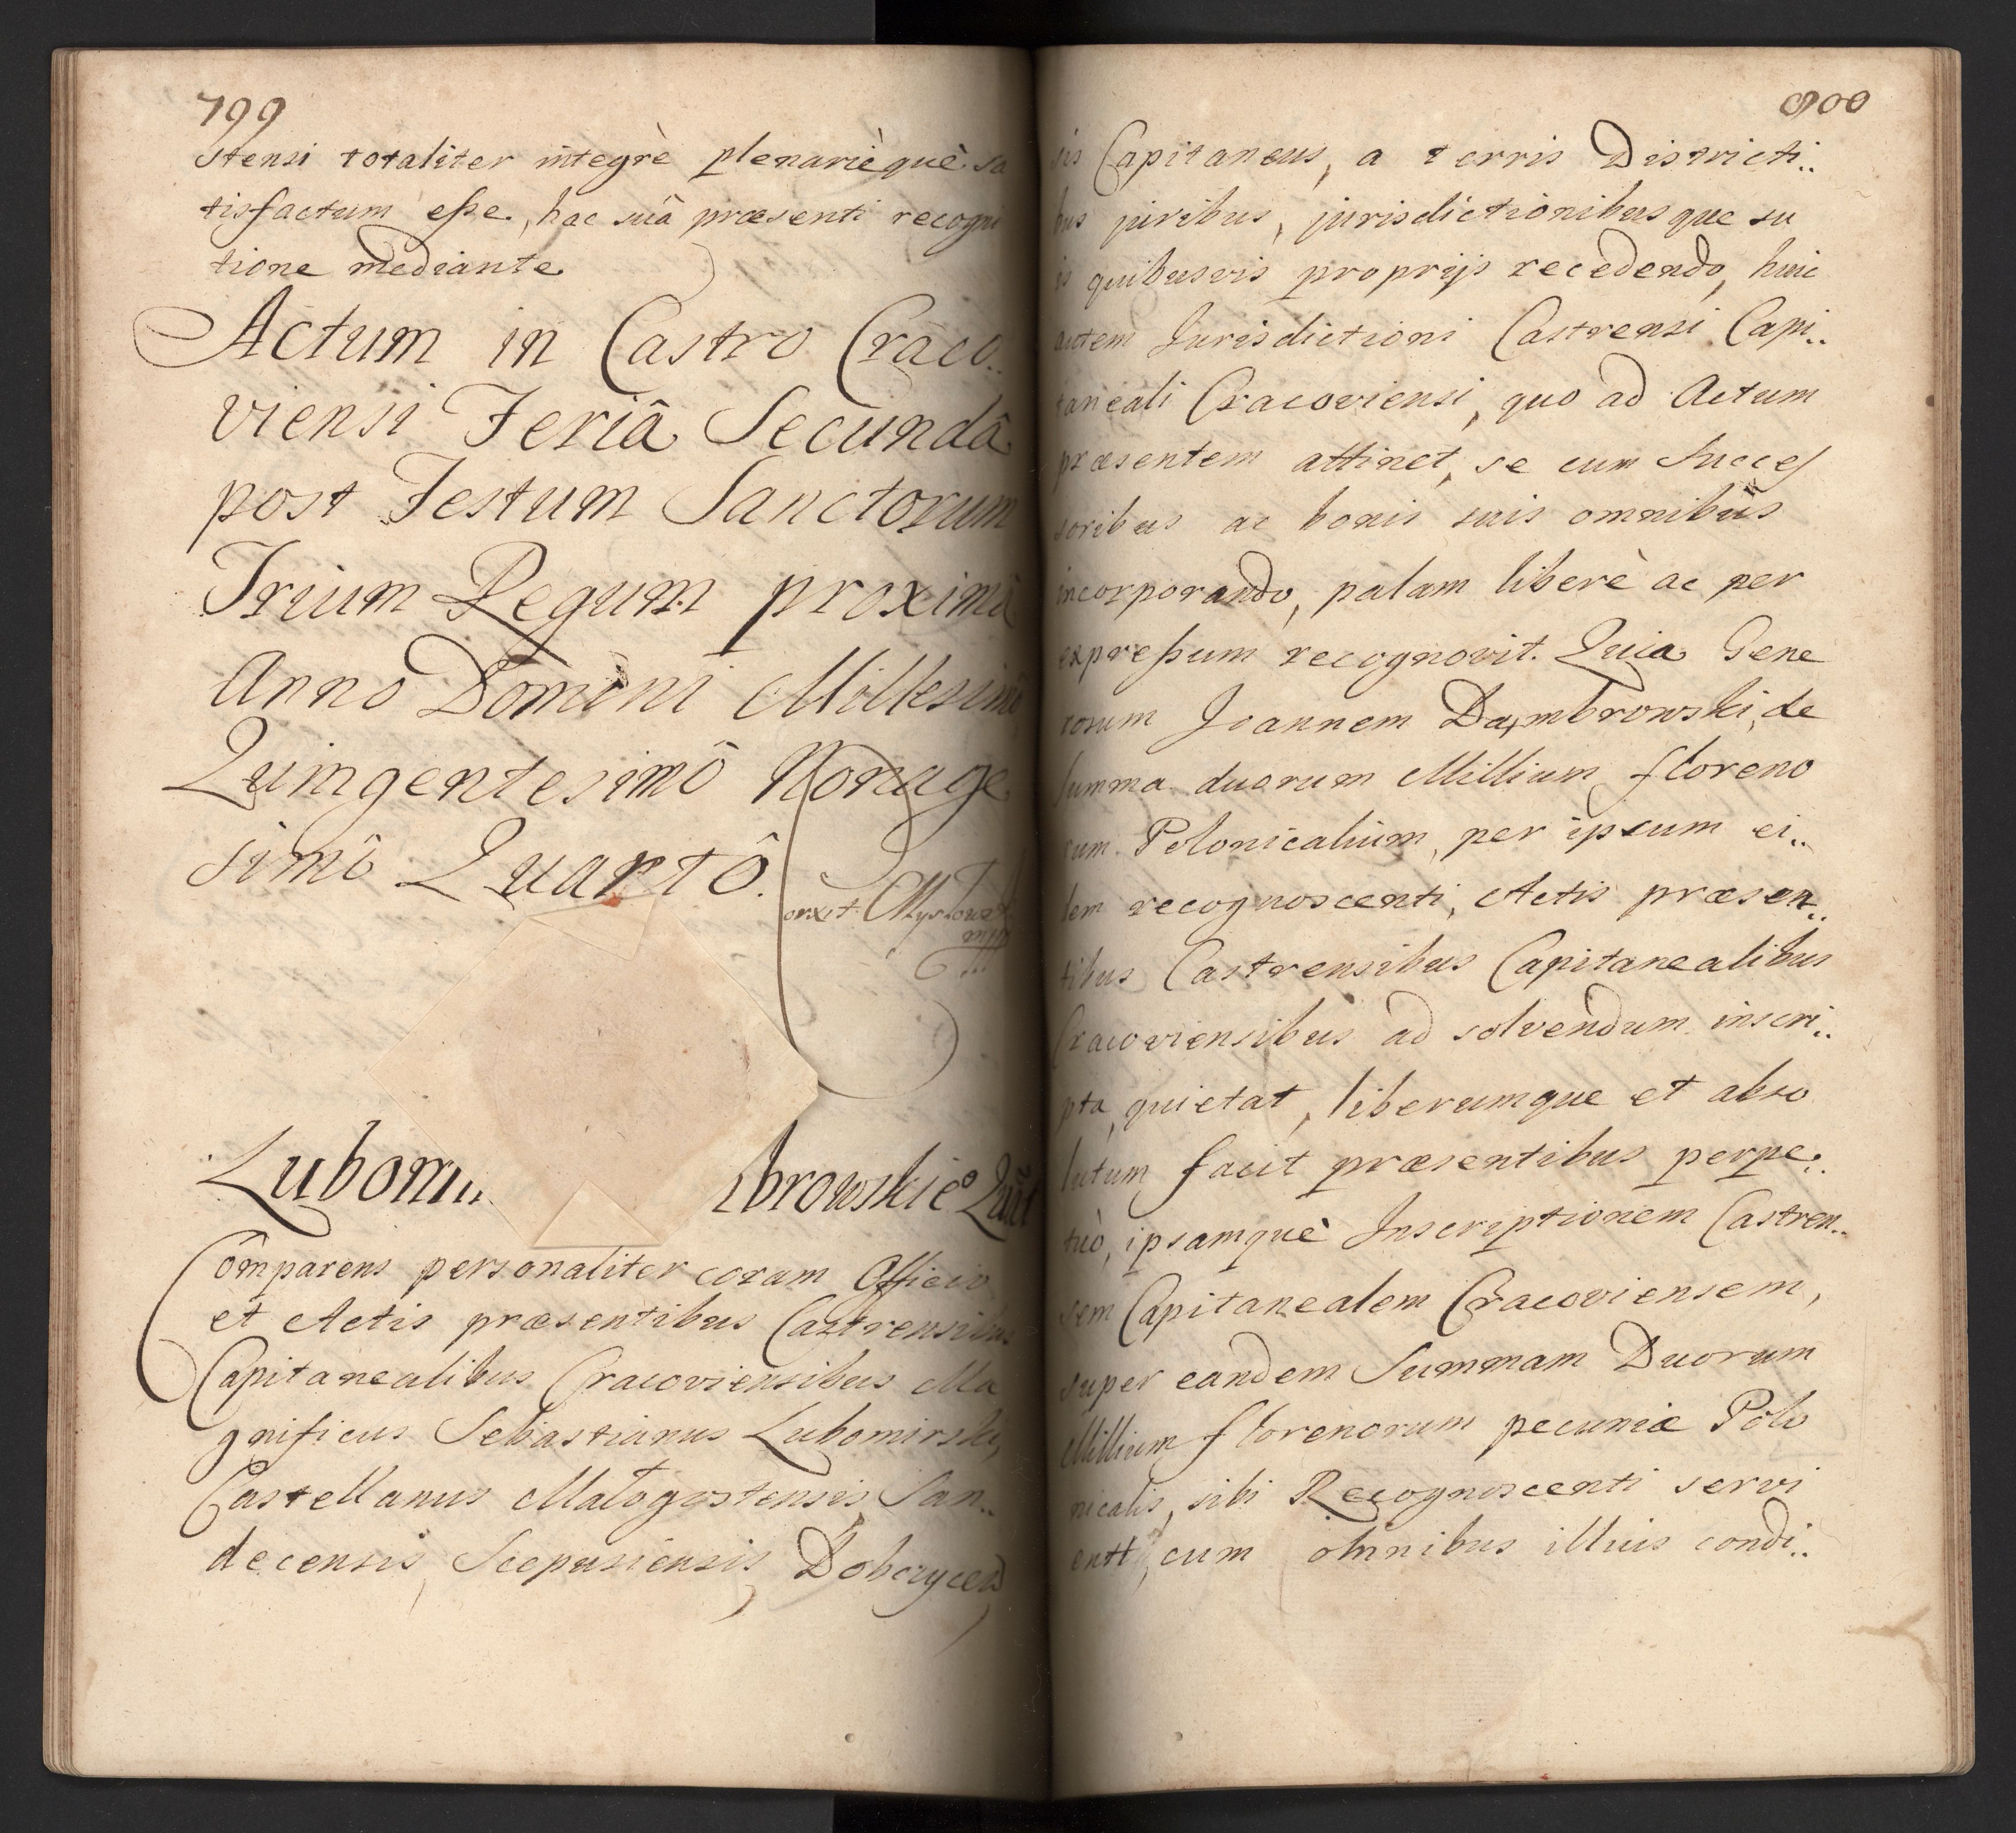 799
stensi totaliter integrè plenariè què sa
tisfactum eße, hac suâ præsenti recogni
tione mediante
Actum in Castro Craco..
viensi Feriâ Secundâ
post Festum Sanctorum
Trium Regum proximâ
Anno Domini Millesimô
Quingentesimô Nonage
simô Quartô.
Lubomi browskie Quit
Comparens personaliter coram Officio
et Actis præsentibus Castrensibus
Capitanealibus Cracoviensibus Ma
gnificus Sebastianus Lubomirski,
Castellanus Malogostensis, San..
decensis, Scepusiensis, Dobczycen
800
sis Capitaneus, a terris Districti..
bus juribus, jurisdictionibusque su
is quibusvis proprijs recedendo, huic
autem Jurisdictioni Castrensi Capi..
taneali Cracoviensi, quo ad Actum
præsentem attinet, se cum Succes
soribus ac bonis suis omnibus
incorporando, palam liberè ac per
expreßum recognovit. Quia Gene
rosum Joannem Dambrowski, de
summa duorum Millium floreno
rum Polonicalium, per ipsum ei..
dem recognoscenti, Actis præsen..
tibus Castrensibus Capitanealibus
Cracoviensibus ad solvendum inscri..
pta, quietat, liberumque et abso
lutum facit præsentibus perpe..
tuò, ipsamquè Inscriptionem Castren..
sem Capitanealem Cracoviensem,
super eandem Summam Duorum
Millium florenorum pecuniæ Polo
nicalis, sibi Recognoscenti servi
entt, cum omnibus illius condi..